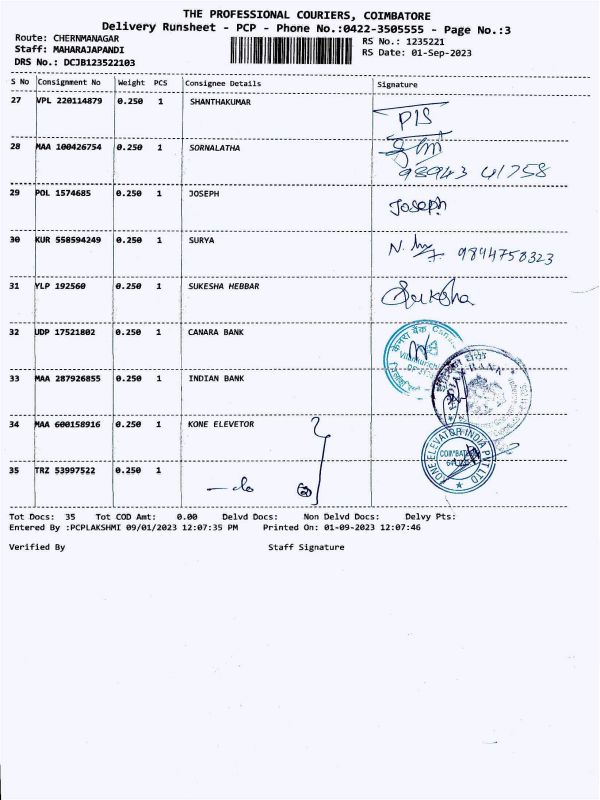 THE PROFESSIONAL COURIERS, COIMBATORE
Delivery Runsheet - PCP - Phone No.:0422-3505555 - Page No.:3
Route: CHERNMANAGAR
RS No.: 1235221
Staff: MAHARAJAPANDI
RS Date: 01-Sep-2023
DRS No.: DCJB123522103
S No Consignment No Weight PCS Consignee Details Signature
27 VPL 220114879 0.250 1 SHANTHAKUMAR
28 MAA 100426754 0.250 1 SORNALATHA
98943 41758
29 POL 1574685 0.250 1 JOSEPH Joseph
30 KUR 558594249 0.250 1 SURYA 9844758323
31 YLP 192560 0.250 1 SUKESHA HEBBAR Sukesha
32 UDP 17521802 0.250 1 CANARA BANK केनरा बैंक
33 MAA 287926855 0.250 1 INDIAN BANK INDIAN BANK
34 MAA 600158916 0.250 1 KONE ELEVETOR KONE ELEVATOR INDIA PVT LTD
35 TRZ 53997522 0.250 1
Tot Docs: 35 Tot COD Amt: 0.00 Delvd Docs: Non Delvd Docs: Delvy Pts:
Entered By :PCPLAKSHMI 09/01/2023 12:07:35 PM Printed On: 01-09-2023 12:07:46
Verified By Staff Signature